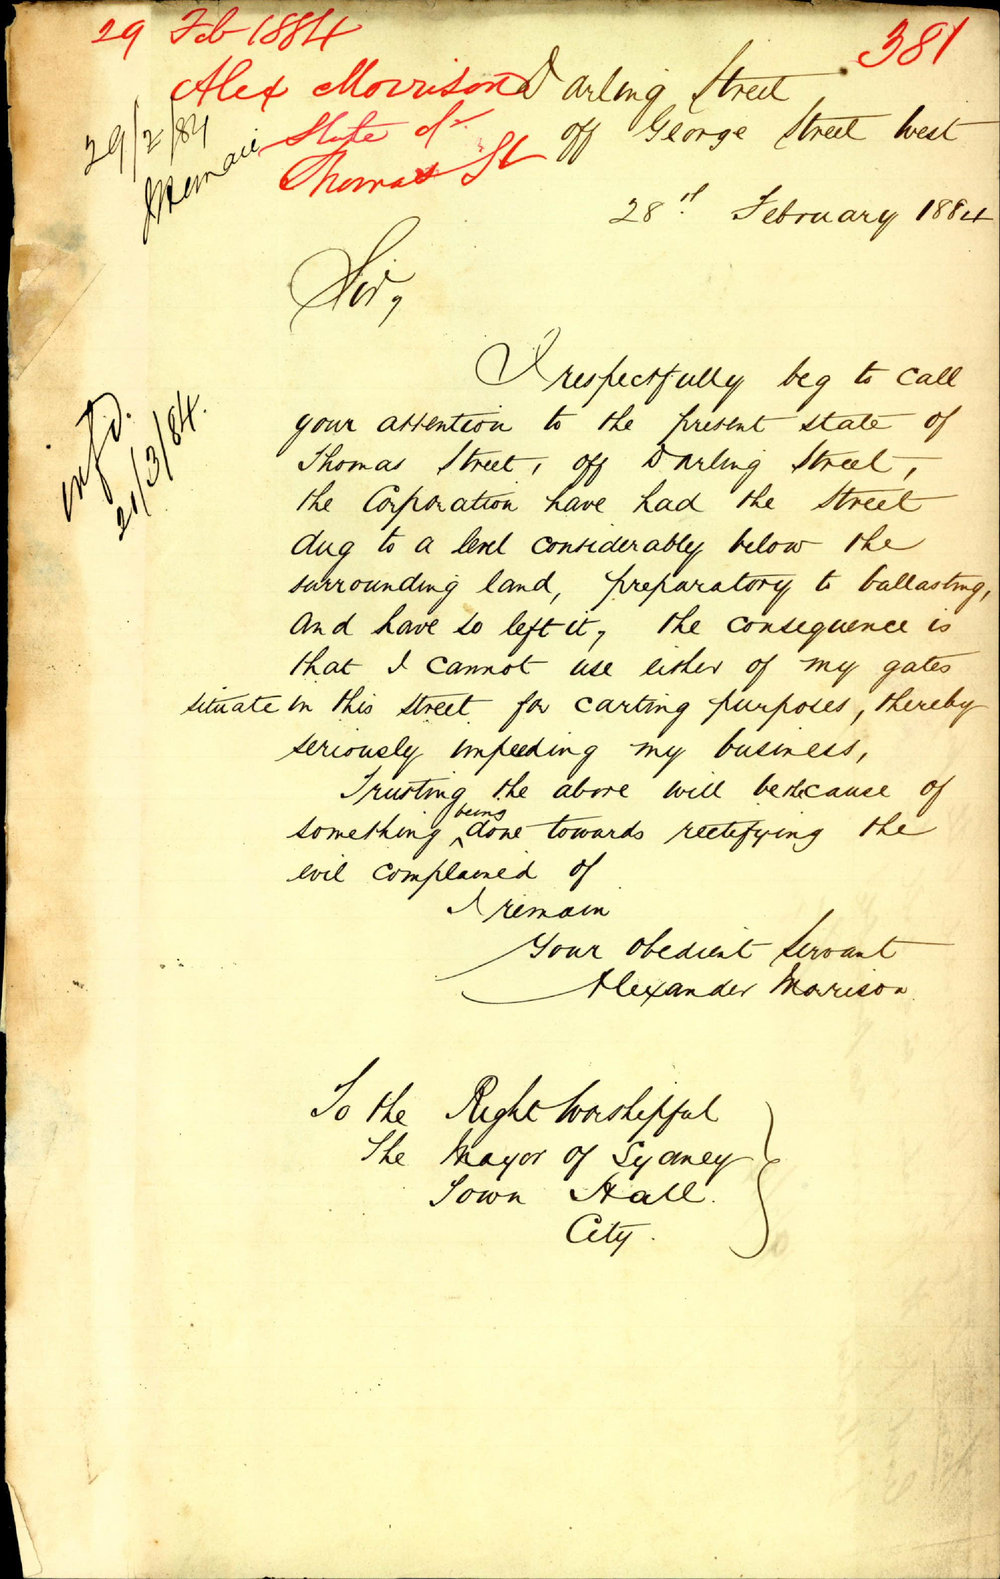 29 Feb 1884
381
Alex Morrison
State of
Thomas St
29/2/84
infd.
21/3/84.
Darling Street
off George Street West
28th February 1884
Sir,
I respectfully beg to call
your attention to the present state of
Thomas Street, off Darling Street,
the Corporation have had the Street
dug to a level considerably below the
surrounding land, preparatory to ballasting,
and have so left it, the consequence is
that I cannot use either of my gates
situate in this street for carting purposes, thereby
seriously impeeding my business,
Trusting the above will be the cause of
something being done towards rectifying the
evil complained of
I remain
Your obedient Servant
Alexander Morrison
To the Right Worshipful
The Mayor of Sydney
Town Hall.
City.